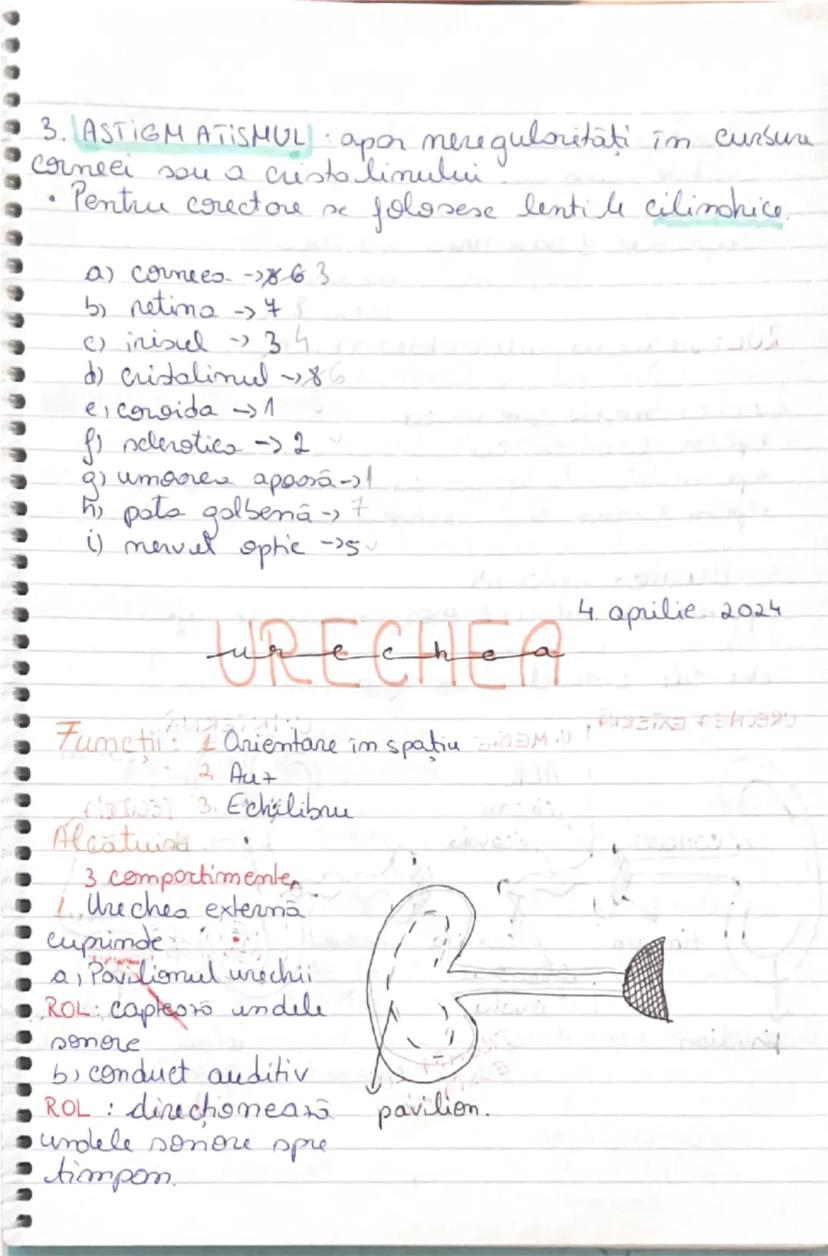 3. ASTIGMATISMUL : apar neregularități în curbura
corneei sau a cristalinului.
• Pentru corectare se folosesc lentile cilindrice.
a) corneea -> 6 3
b) retina -> 7
c) irisul -> 3 4
d) cristalinul -> 8 6
e) coroida -> 1
f) sclerotica -> 2
g) umoarea apoasă -> 1
h) pata galbenă -> 7
i) nervul optic -> 5
4. aprilie. 2024
URECHEA
urechea
Funcții : 1. Orientare în spațiu
2. Auz
3. Echilibru
Alcătuire
3 compartimente
1. Urechea externă
cuprinde
a) Pavilionul urechii
ROL: captează undele
sonore
b) conduct auditiv
ROL : direcționează
undele sonore spre
timpan.
pavilion.